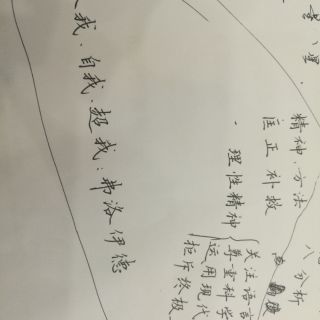 分析
精神、方法
匡正补救
· 理性精神
关注语言
尊重科学
运用现代
拒斥终极
我、自我、超我：弗洛伊德